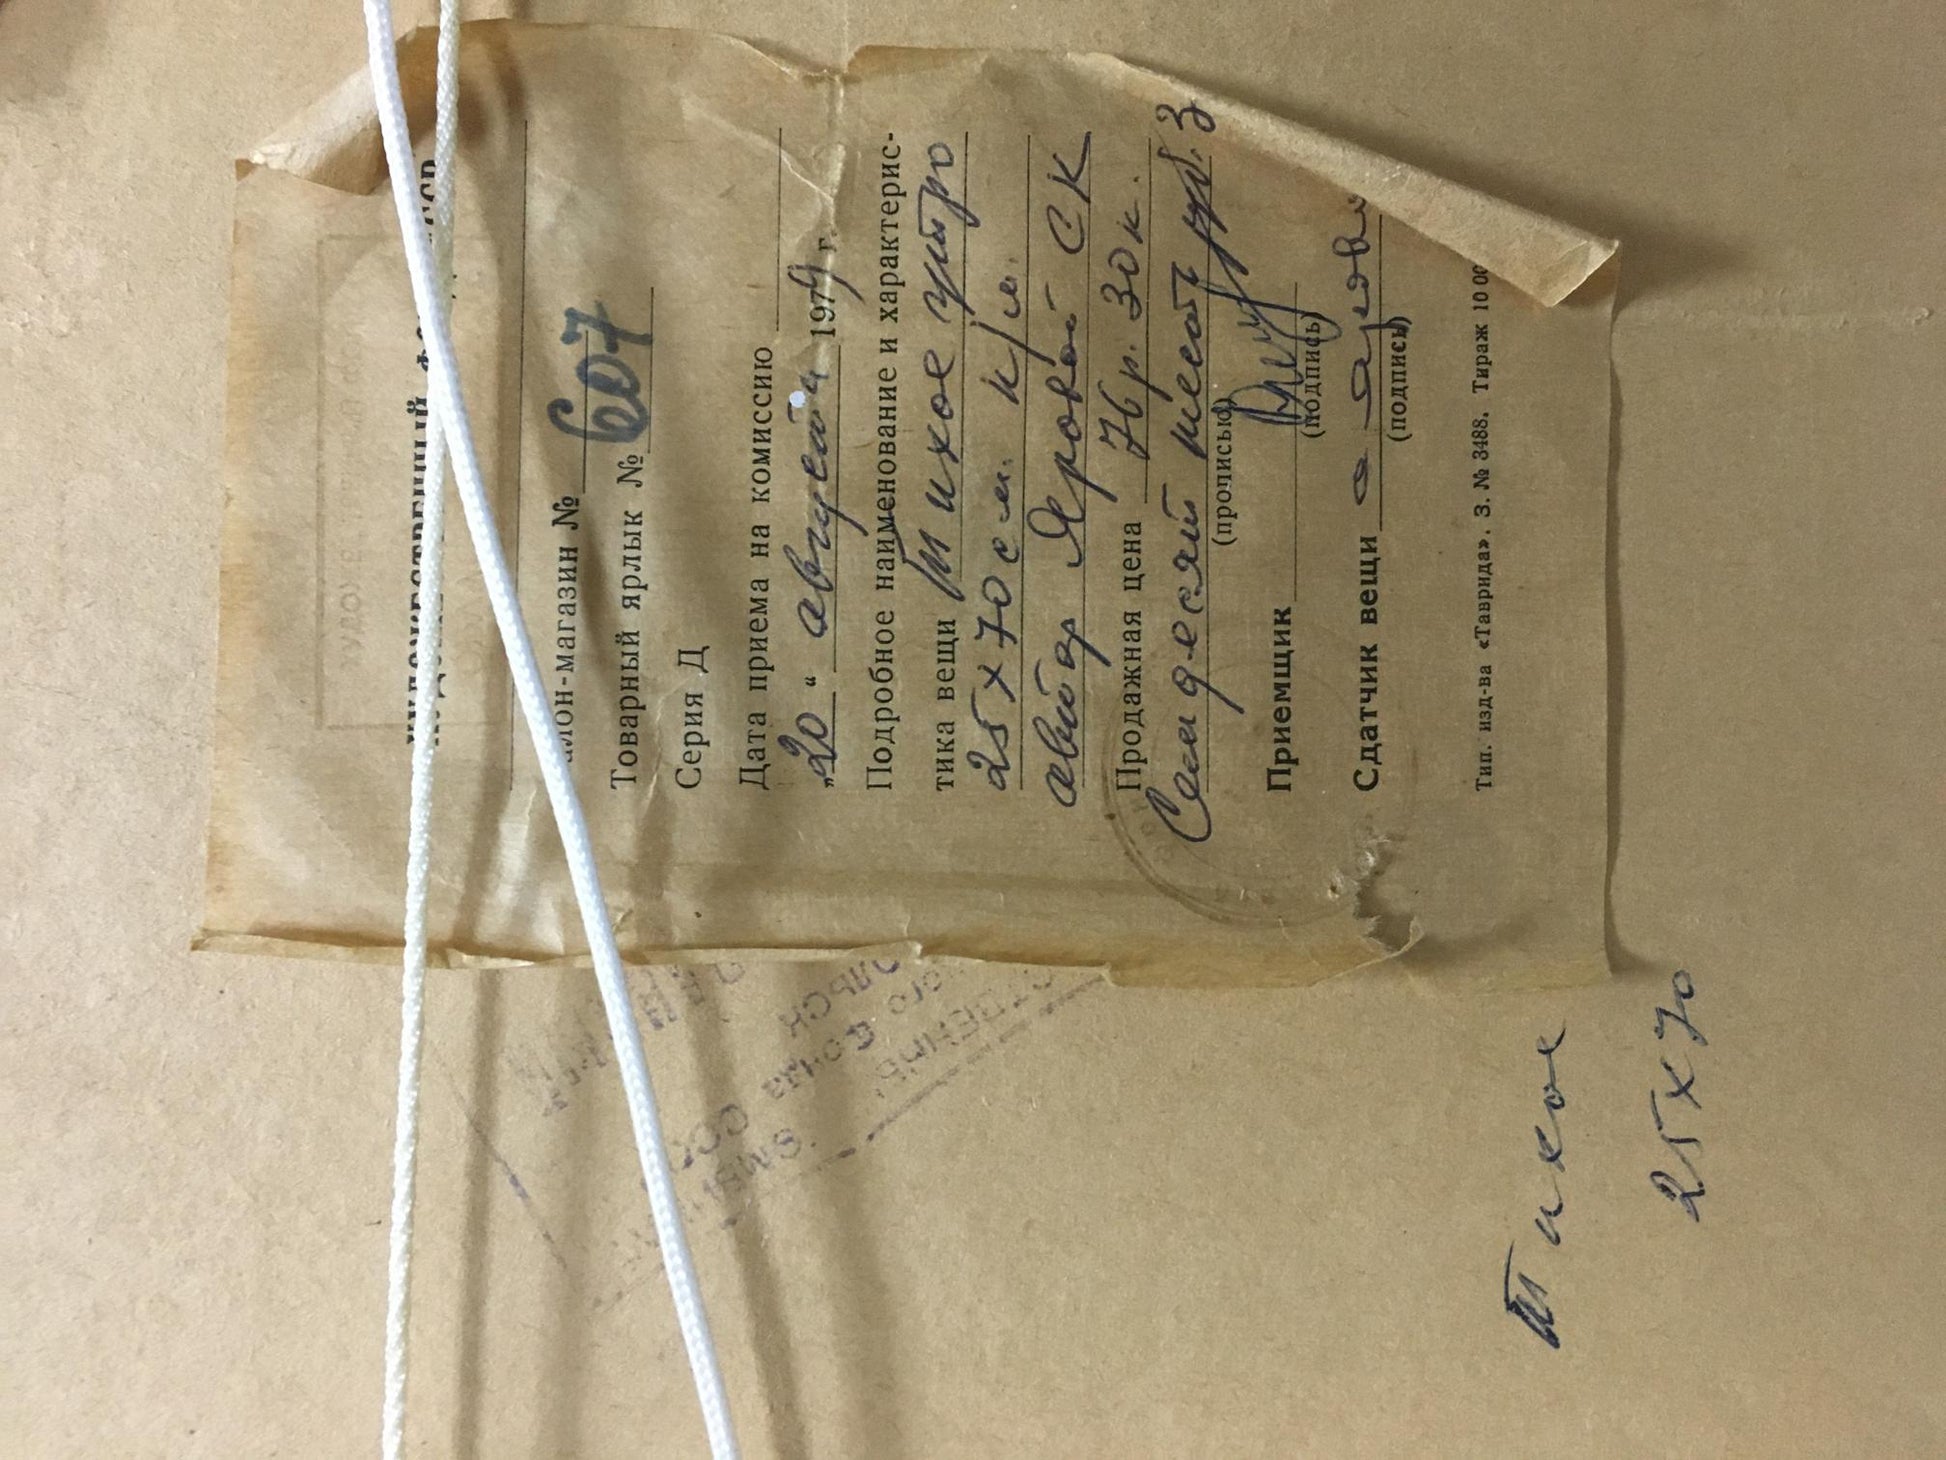 ХУДОЖЕСТВЕННЫЙ
Товарный ярлык № 607
Серия Д
Дата приема на комиссию
„20“ августа 1974 г.
Подробное наименование и характерис-
тика вещи Тихое утро
25х70 см. к/м.
автор Яровой СК
Продажная цена 76 р. 30 к.
Семдесят шесть руб. 3
(прописью)
Приемщик
(подпись)
Сдатчик вещи
(подпись)
Тип. изд-ва «Таврида». З. № 3488. Тираж 10 00
Тихое
25х70